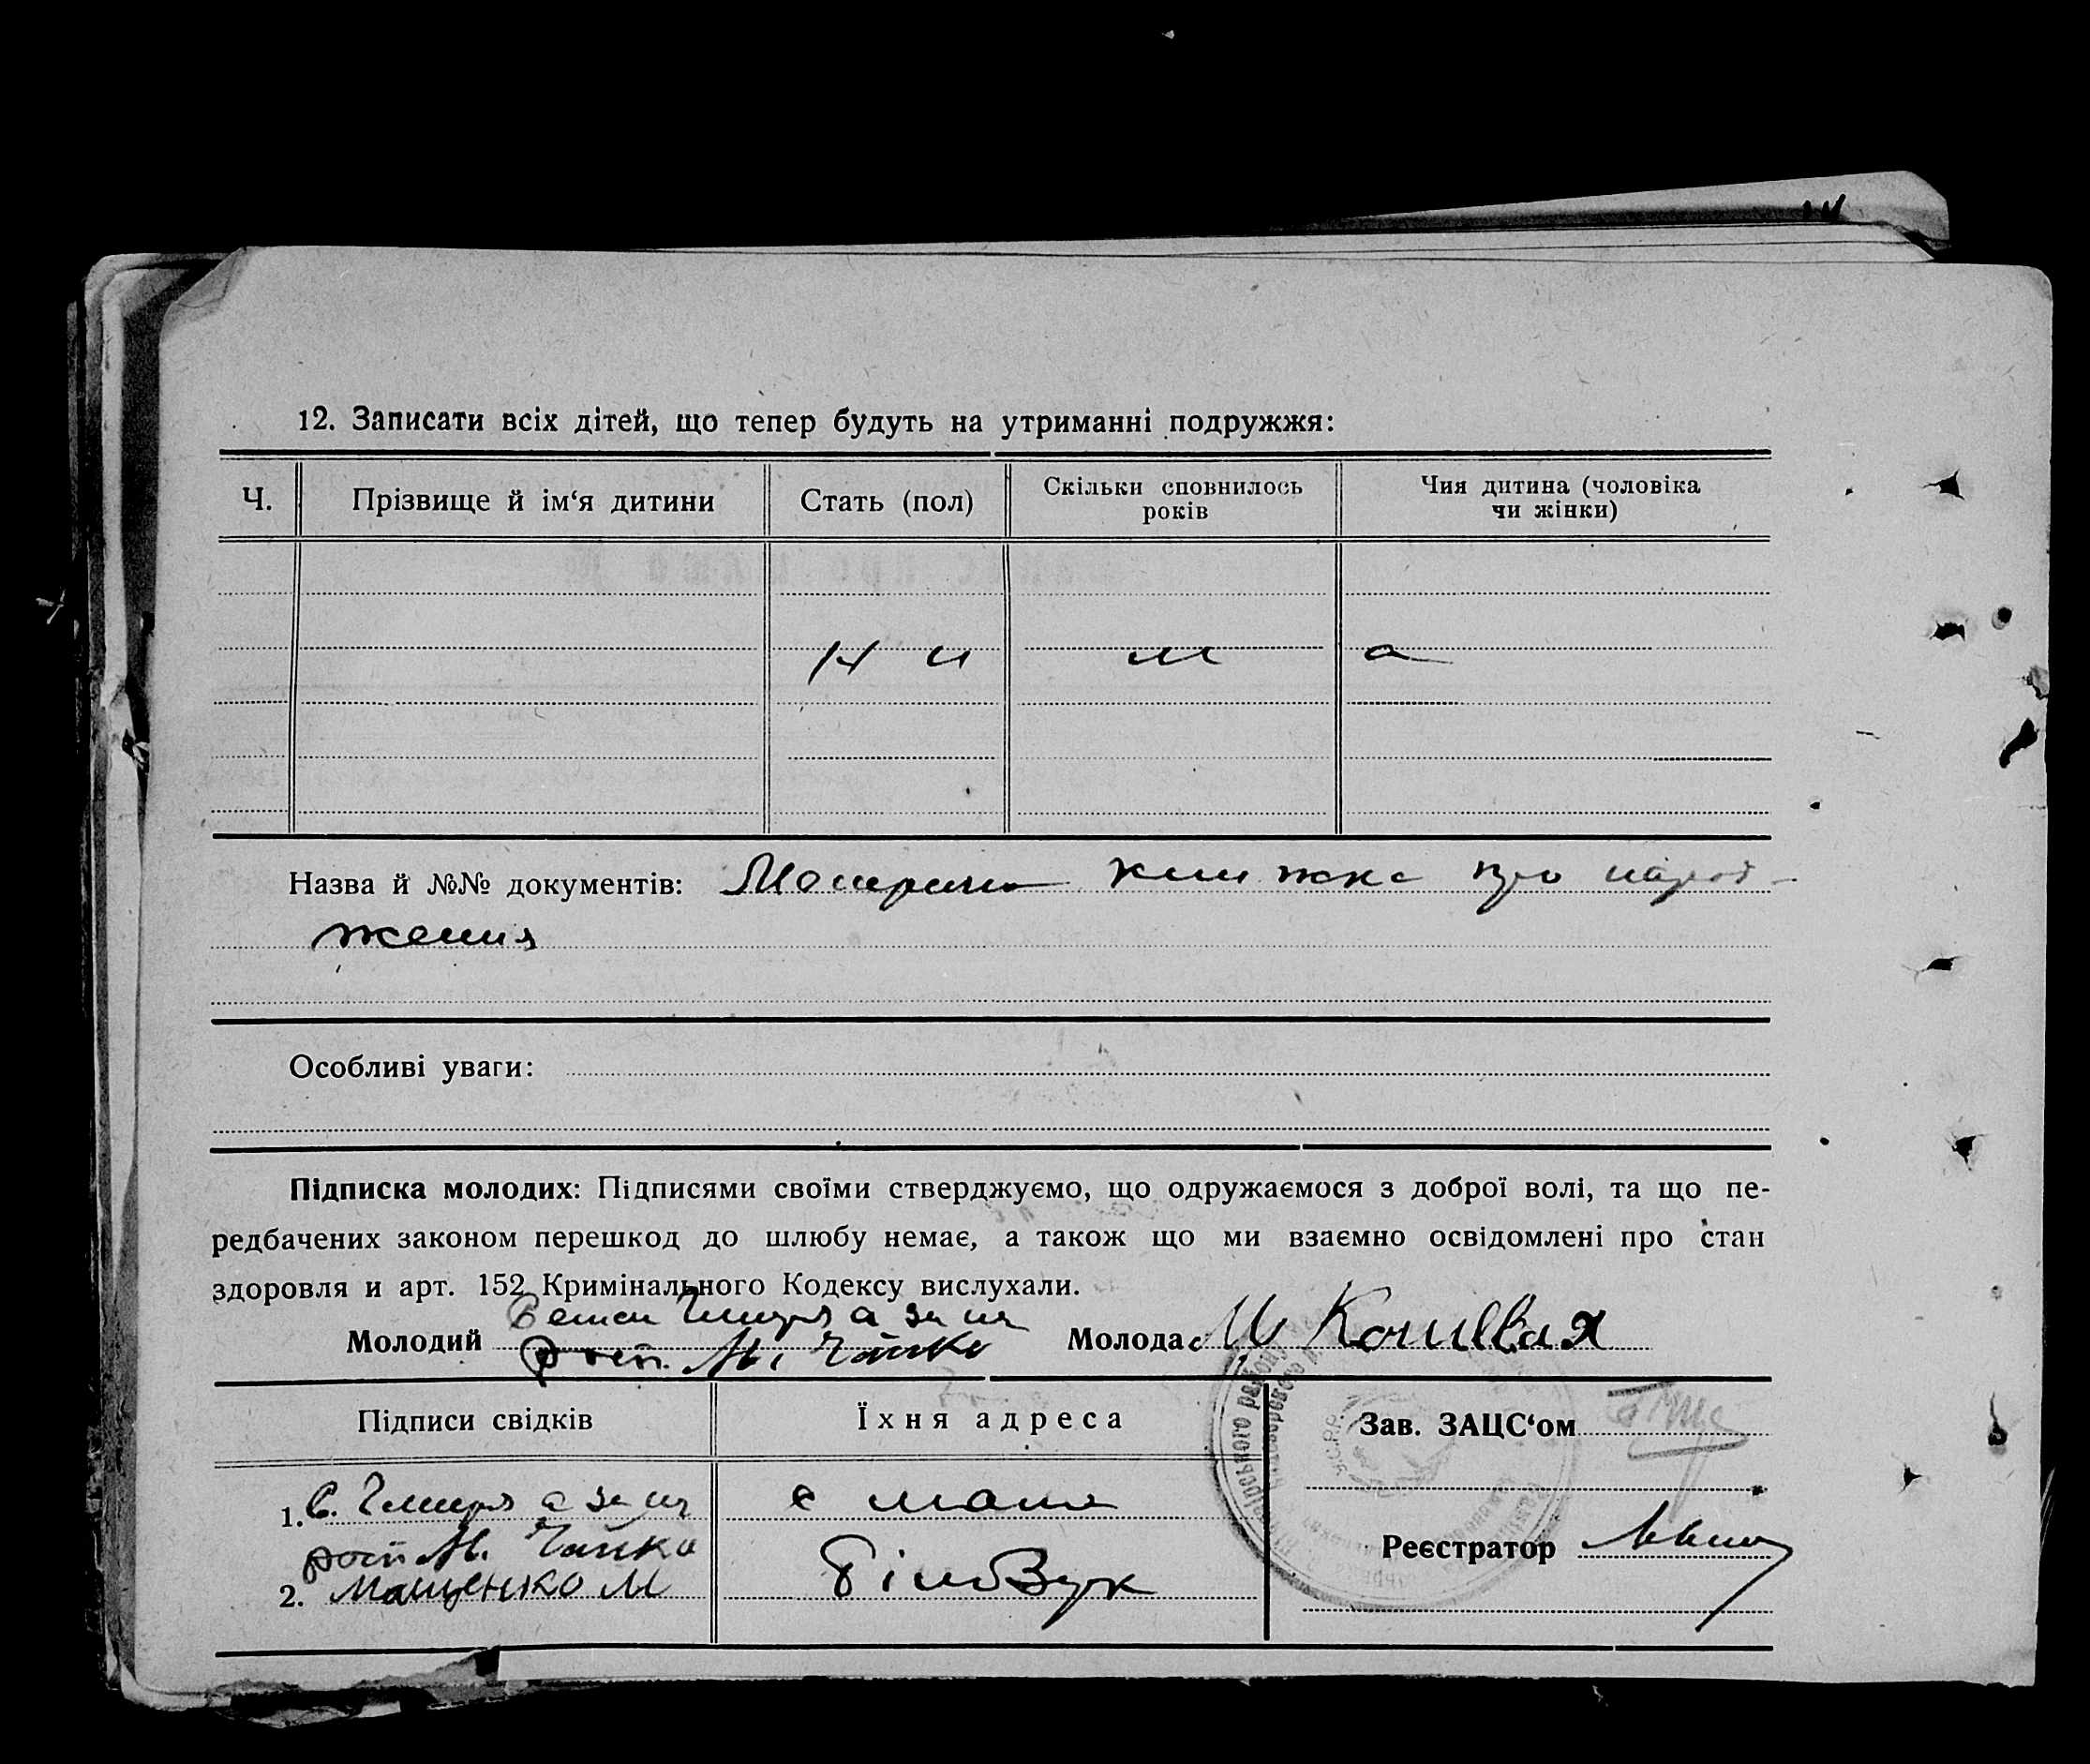 12. Записати всіх дітей, що тепер будуть на утриманні подружжя:
Ч. Прізвище й ім‘я дитини Стать (пол) Скільки сповнилось років Чия дитина (чоловіка чи жінки)
Н и м а
Назва й №№ документів: книжка про народ-
жения
Особливі уваги:
Підписка молодих: Підписями своїми стверджуємо, що одружаємося з доброї волі, та що пе-
редбачених законом перешкод до шлюбу немає, а також що ми взаємно освідомлені про стан
здоровля и арт. 152 Кримінального Кодексу вислухали.
а за ня
Молодий М. Чайка Молода
Підписи свідків Їхня адреса Зав. ЗАЦС‘ом
1. С. а за ня
М. Чайка Реєстратор
2. Мащенко М